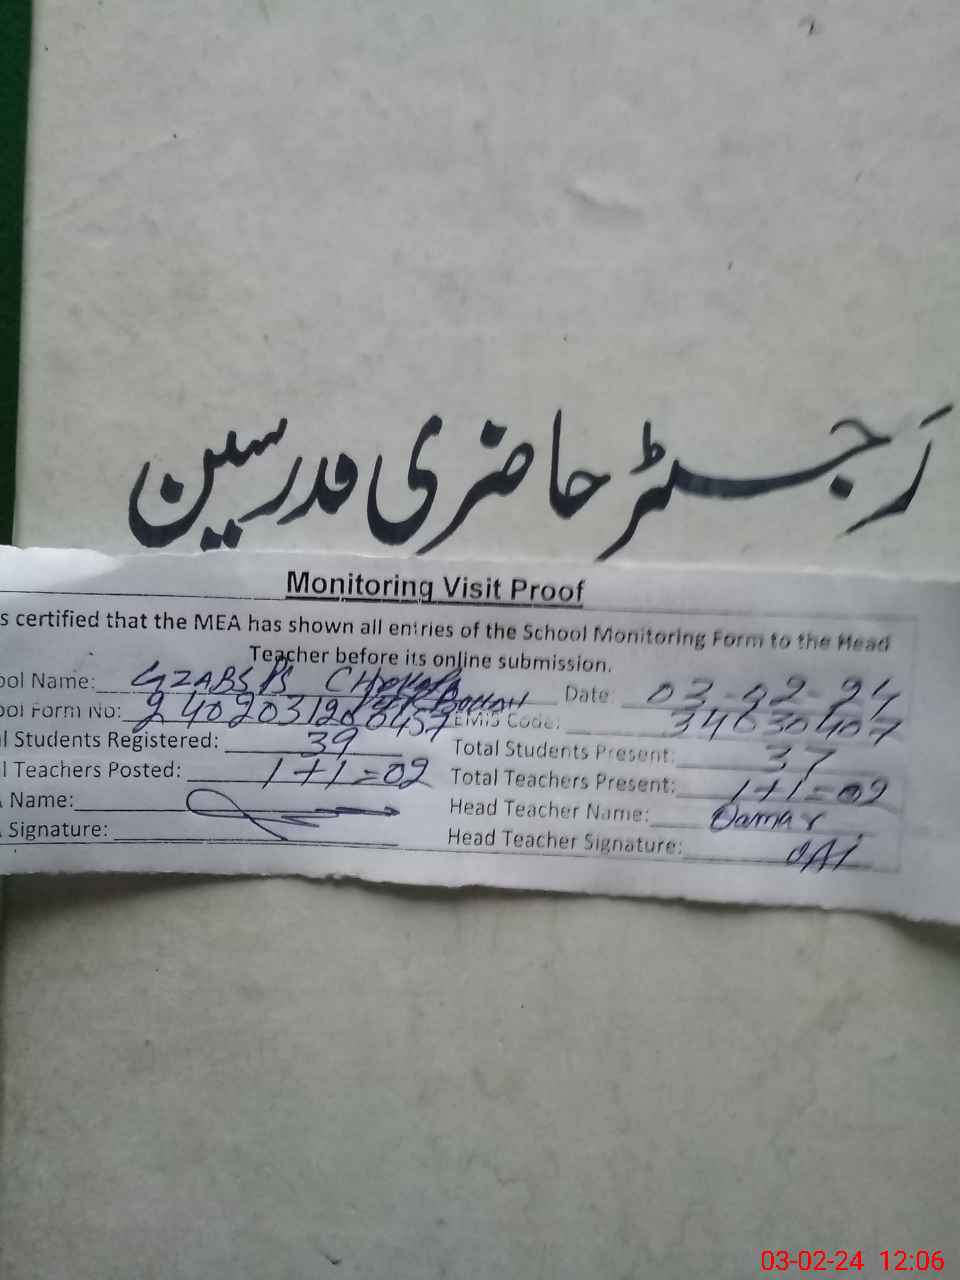 رجسٹر حاضری مدرسین
Monitoring Visit Proof
s certified that the MEA has shown all entries of the School Monitoring Form to the Head
Teacher before its online submission.
ool Name: GZABS PS Date: 03-02-24
ool Form No: EMIS Code:
l Students Registered: 39 Total Students Present: 37
l Teachers Posted: 1+1=02 Total Teachers Present: 1+1=02
Name: Head Teacher Name:
Signature: Head Teacher Signature:
03-02-24 12:06